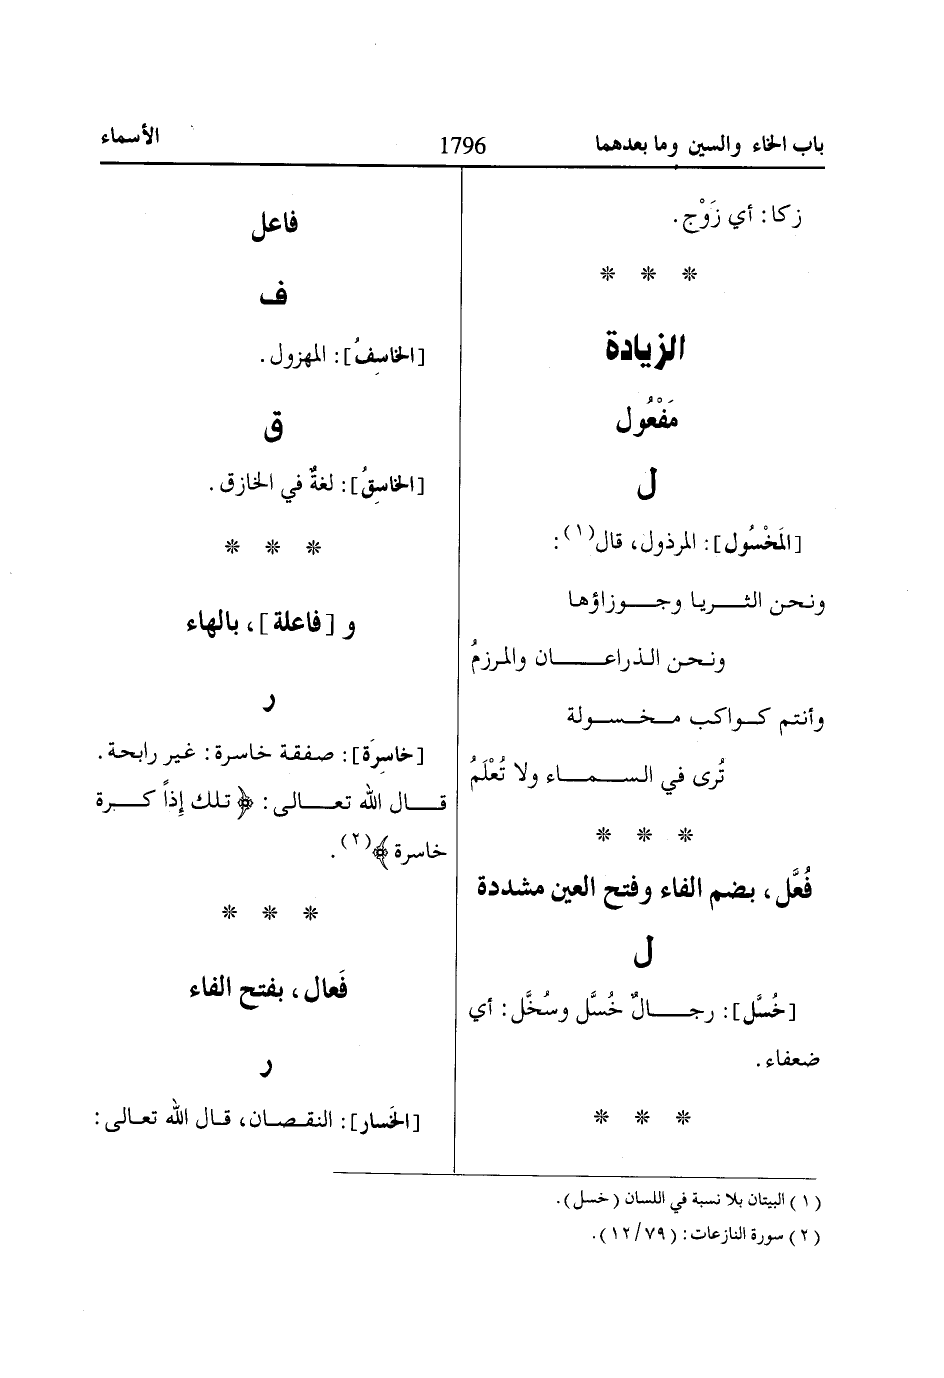 باب الخاء والسين وما بعدهما
1796
الأسماء
زكا: أي زَوْج.
* * *
الزيادة
مَفْعُول
ل
[المَخْسُول]: المرذول، قال(١):
ونحن الثريا وجوزاؤها
ونحن الذراعان والمرزمُ
وأنتم كواكب مخسولة
تُرى في السماء ولا تُعْلَمُ
* * *
فُعَّل، بضم الفاء وفتح العين مشددة
ل
[خُسَّل]: رجالٌ خُسَّل وسُخَّل: أي
ضعفاء.
* * *
فاعل
ف
[الخاسِفُ]: المهزول.
ق
[الخاسِقُ]: لغةٌ في الخازق.
* * *
و [فاعلة]، بالهاء
ر
[خاسِرَة]: صفقة خاسرة: غير رابحة.
قال الله تعالى: ﴿تلك إِذاً كرة
خاسرة﴾(٢).
* * *
فَعال، بفتح الفاء
ر
[الخَسار]: النقصان، قال الله تعالى:
(١) البيتان بلا نسبة في اللسان (خسل).
(٢) سورة النازعات: (٧٩/١٢).